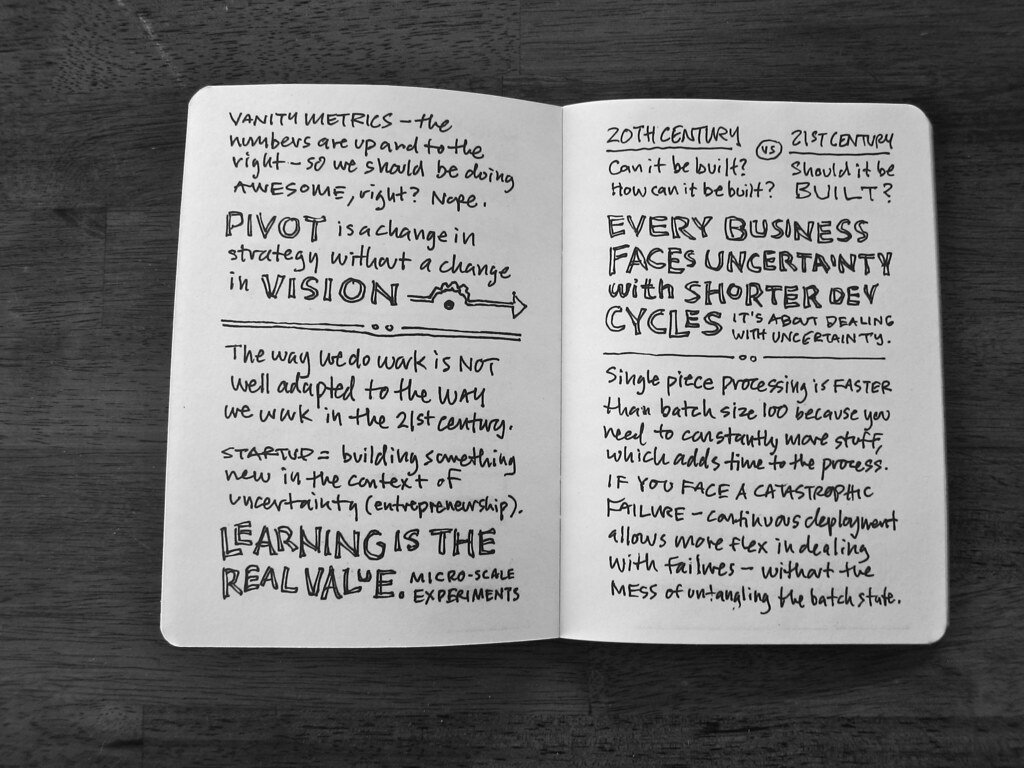 VANITY METRICS – the
numbers are up and to the
right – so we should be doing
AWESOME, right? Nope.
PIVOT is a change in
strategy without a change
in VISION
The way we do work is NOT
well adapted to the WAY
we work in the 21st century.
STARTUP = building something
new in the context of
uncertainty (entrepreneurship).
LEARNING IS THE
REAL VALUE. MICRO-SCALE
EXPERIMENTS
20TH CENTURY vs 21ST CENTURY
Can it be built? Should it be
How can it be built? BUILT?
EVERY BUSINESS
FACES UNCERTAINTY
with SHORTER DEV
CYCLES IT'S ABOUT DEALING
WITH UNCERTAINTY.
Single piece processing is FASTER
than batch size 100 because you
need to constantly move stuff,
which adds time to the process.
IF YOU FACE A CATASTROPHIC
FAILURE – continuous deployment
allows more flex in dealing
with failures – without the
MESS of untangling the batch state.